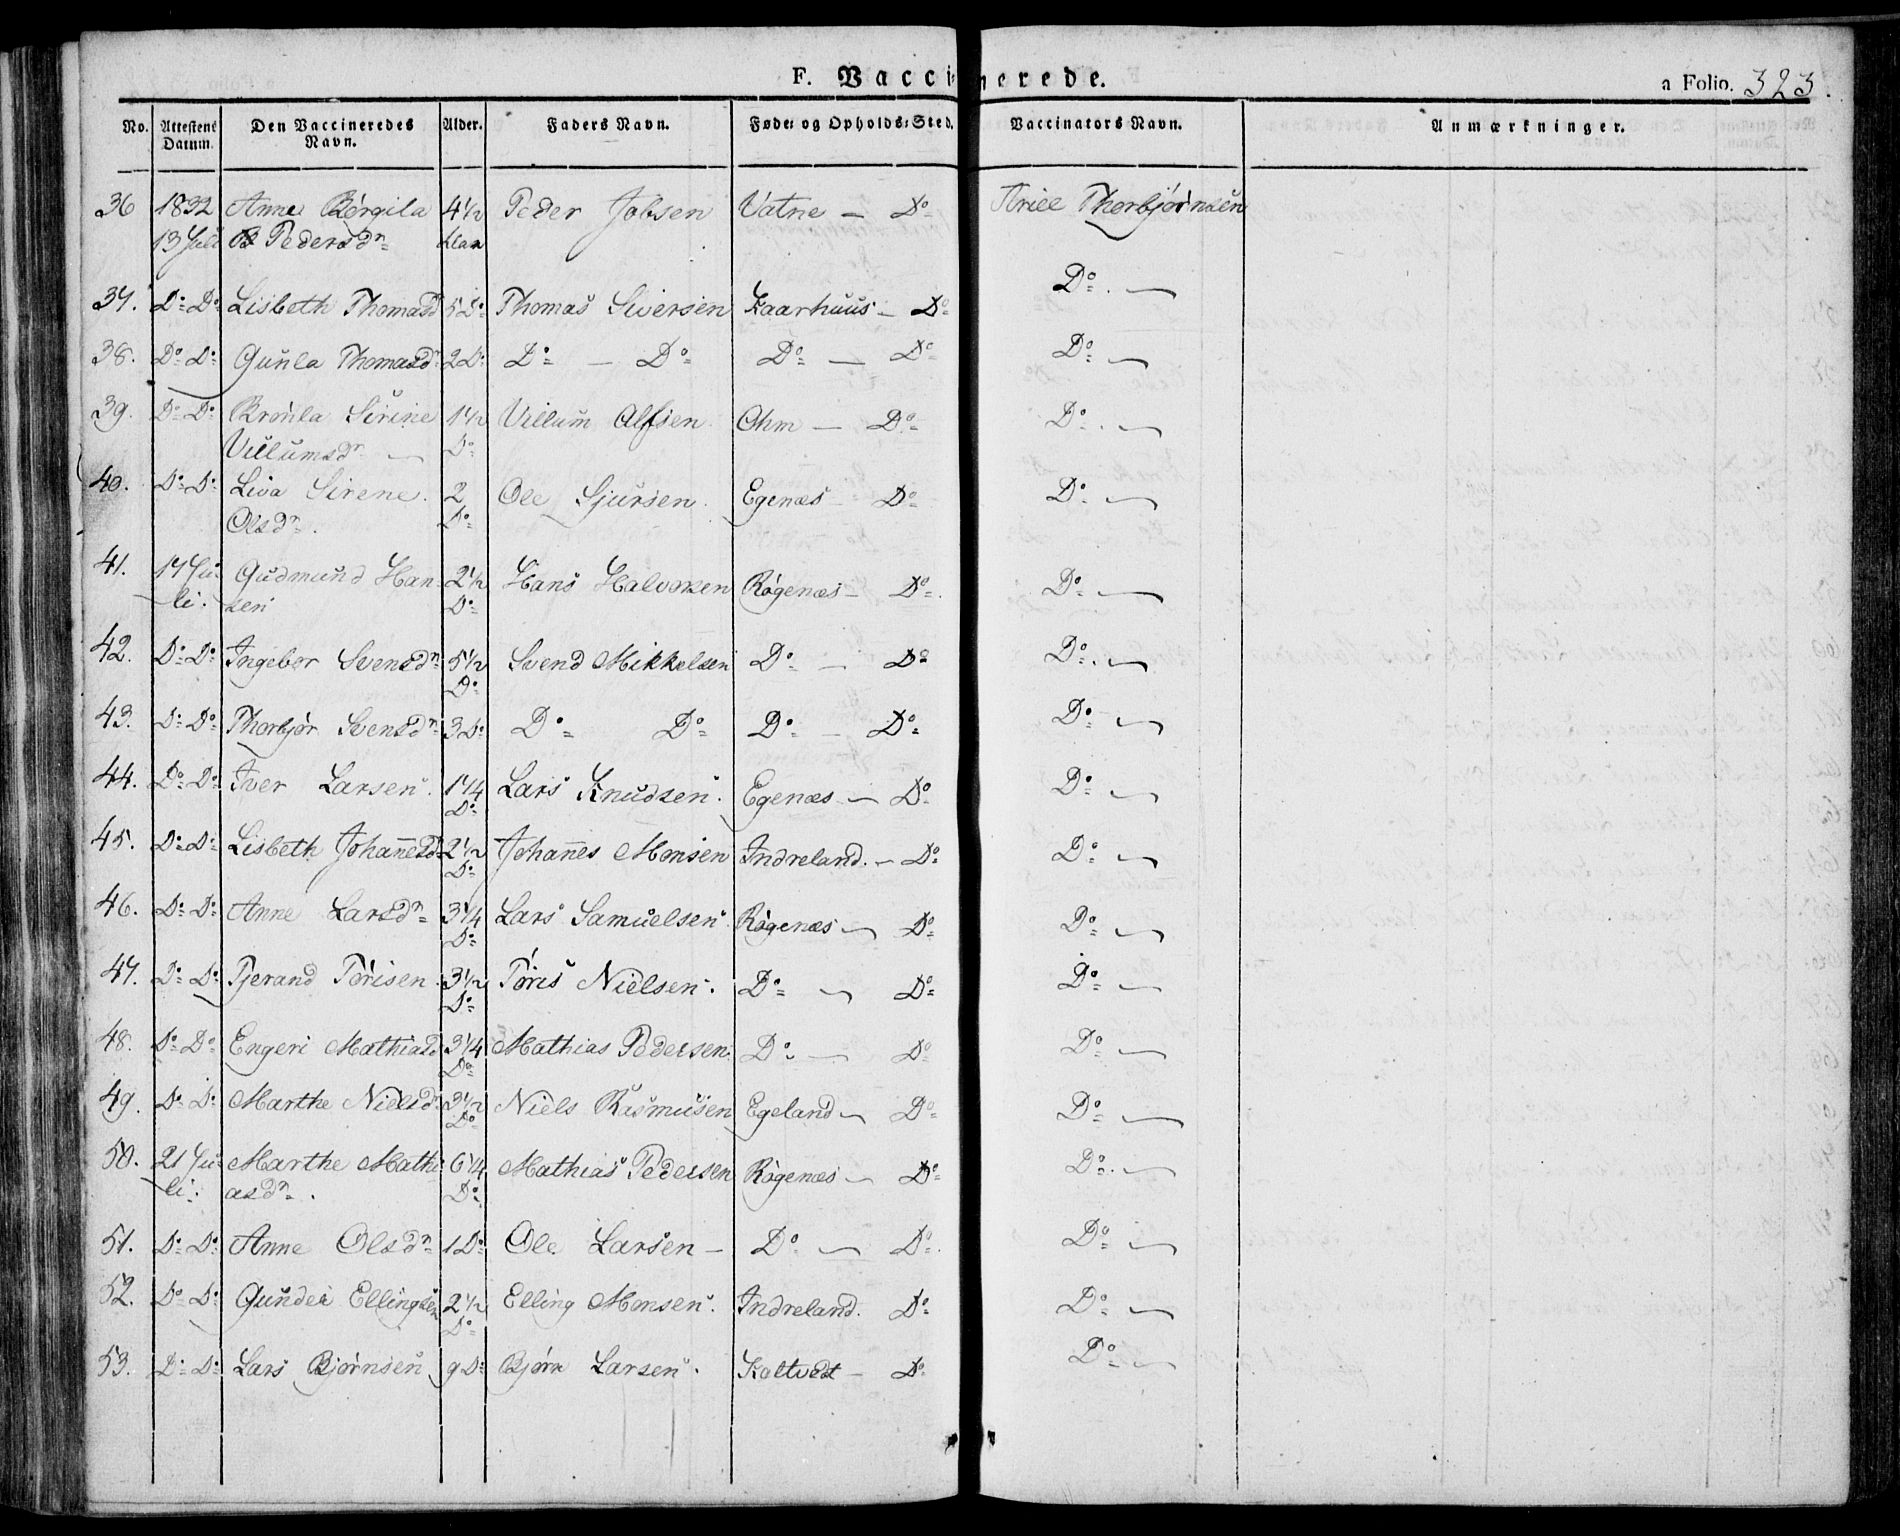 F. Vaccinerede.
a Folio. 323.
No. Attestens Datum. Den Vaccineredes Navn. Alder. Faders Navn. Føde: og Opholds:Sted. Vaccinators Navn. Anmærkninger.
36 1832 Anne Bergila 4½ Peder Jobsen Vatne — Do Ariel Thorbjørnsen
13 Juli Pedersdn Aar
37. Do Do Lisbeth Thomasd 5 Do Thomas Siversen Kaarhuus — Do Do. —
38. Do Do Gunla Thomasdn 2 Do Do — Do Do — Do Do —
39. Do Do Bronla Sirine 1½ Villum Olfsen Ohm — Do Do. —
Villumsdn — Do
40. Do Do Liva Sirene. 2 Ole Sjursen. Egenæs — Do Do —
Olsdn. Do
41. 17 Ju- Gudmund Han 2½ Hans Halvorsen Røgenæs — Do. Do —
li. sen Do
42. Do Do Ingebor Svensdn 5½ Svend Mikkelsen Do — Do Do. —
Do
43. Do Do Thorbjør Svensdn 3 Do Do Do Do — Do Do —
44. Do Do Iver Larsen. 1¼ Lars Knudsen. Egenæs — Do Do —
Do
45. Do Do Lisbeth Johannesd 2½ Johannes Monsen Indreland. — Do Do —
Do
46. Do Do Anne Larsdn 3¼ Lars Samuelsen Røgenæs — Do Do —
Do
47. Do Do Tjerand Tørisen. 3½ Tøris Nielsen. Do — Do Do —
Do
48. Do Do Engeri Mathiasd 3¼ Mathias Pedersen. Do — Do Do —
Do
49. Do Do Marthe Nielsdn 3½ Niels Rasmusen Egeland — Do Do —
Do
50. 21 Ju- Marthe Mathi 6¼ Mathias Pedersen Røgenæs — Do Do. —
li. asdn. Do
51. Do Do Anne Olsdn 1 Do Ole Larsen — Do — Do. Do —
52. Do Do Gunder Ellingsen 2½ Elling Monsen. Indreland. Do Do —
Do
53. Do Do Lars Bjørnsen 9 Do Bjørn Larsen. Koltvedt — Do Do —